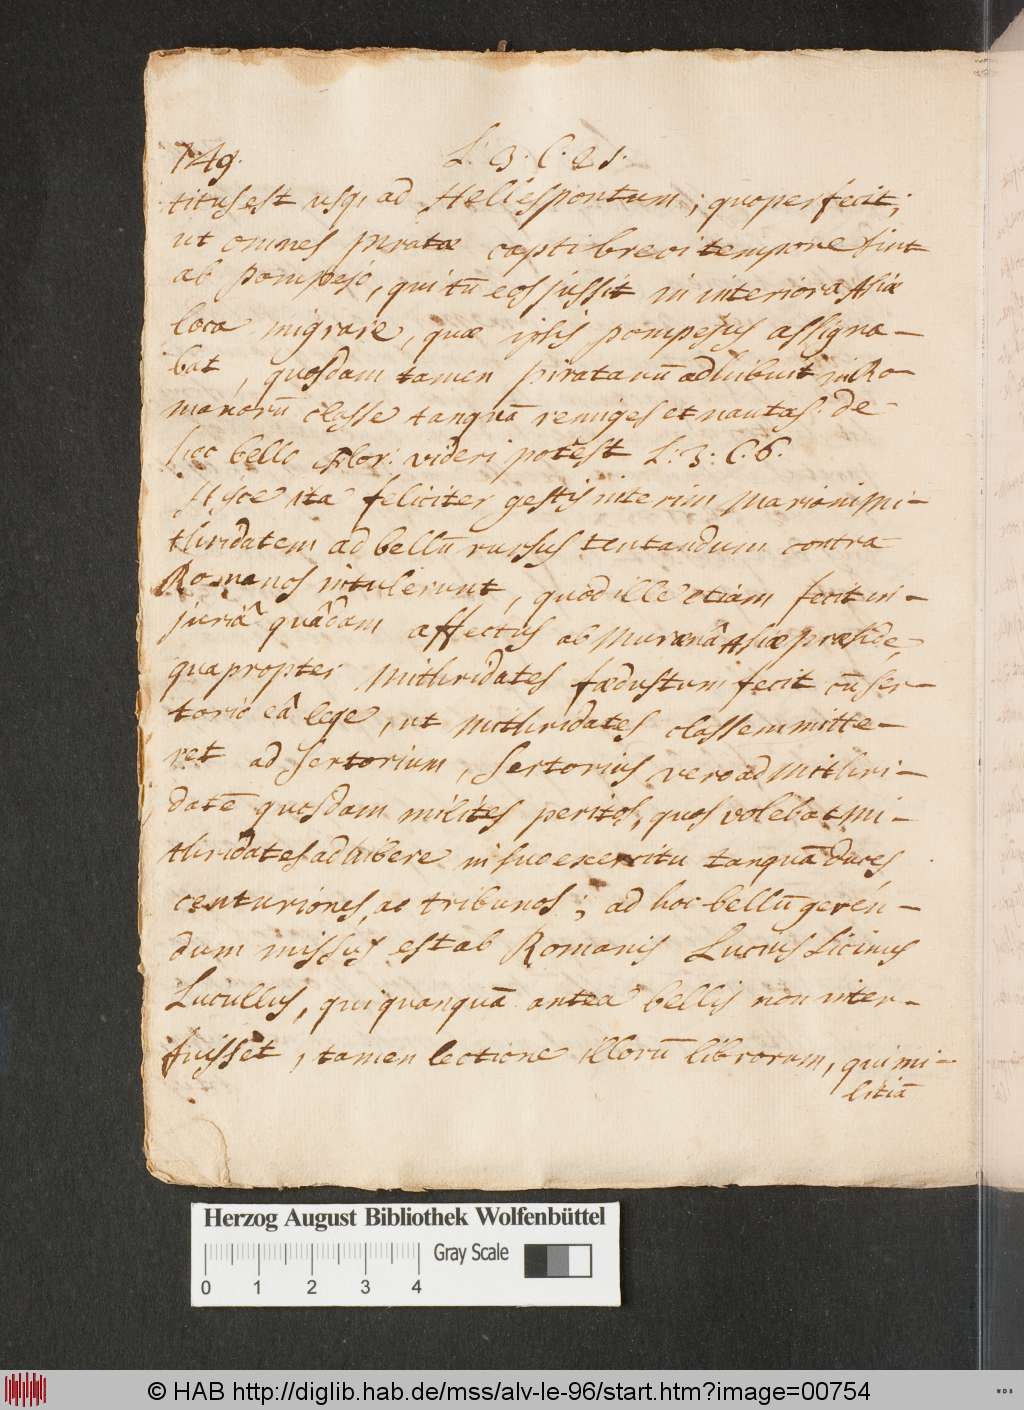 749.
L. 3. C. 21.
titus est usq, ad Hellespontum; quo perfecit;
ut omnes piratæ capti brevi tempore sint
ab Pompejo, qui tū eos jussit in interiora Asiæ
loca migrare, quæ ipsis Pompejus assigna-
bat, quosdam tamen piratarū adhibuit in Ro-
manorū classe tanquā remiges et nautas. de
hoc bello Flor. videri potest L. 3. C. 6.
Hisce ita feliciter gestis interim Mariani Mi-
thridatem ad bellū rursus tentandum contra
Romanos intulerunt, quod ille etiam fecit in-
juriâ quâdam affectus ab Murænâ Asiæ præside,
quapropter Mithridates fœdus tum fecit cū Ser-
torio eâ lege, ut Mithridates classem mitte-
ret ad Sertorium, Sertorius vero ad Mithri-
datē quosdam milites peritos, quos volebat Mi-
thridates adhibere in suo exercitu tanquā duces
centuriones, ac tribunos; ad hoc bellū geren-
dum missus est ab Romanis Lucius Licinus
Lucullus, qui quanquā antea bellis non inter-
fuisset, tamen lectione illorū librorum, qui mi-
litiā
Herzog August Bibliothek Wolfenbüttel
0 1 2 3 4 Gray Scale
© HAB http://diglib.hab.de/mss/alv-le-96/start.htm?image=00754